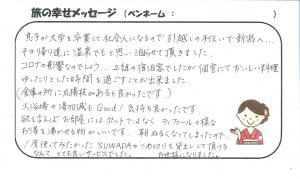 旅の幸せメッセージ (ペンネーム： )
息子が大学を卒業して社会人になるので引越しの手伝いで新潟へ...
その帰り道に温泉でもと思い泊らせて頂きました
コロナの影響なのでしょう... 2組の宿泊客でしたが個室にておいしい料理
ゆったりとした時間を過ごすことが出来ました
(食事の所に洗場があると良かったです)
大浴場の湯加減も Good! 気持ち良かったです
欲を言えば お部屋にはポットではなく ティファールの様な
お湯を沸かせる物がいいです. 朝 ぬるくなってしまったので...
1度使ってみたかった SUWADA のつめ切りを貸出しして頂ける
なんて とても良いサービスでした. お世話になりました.